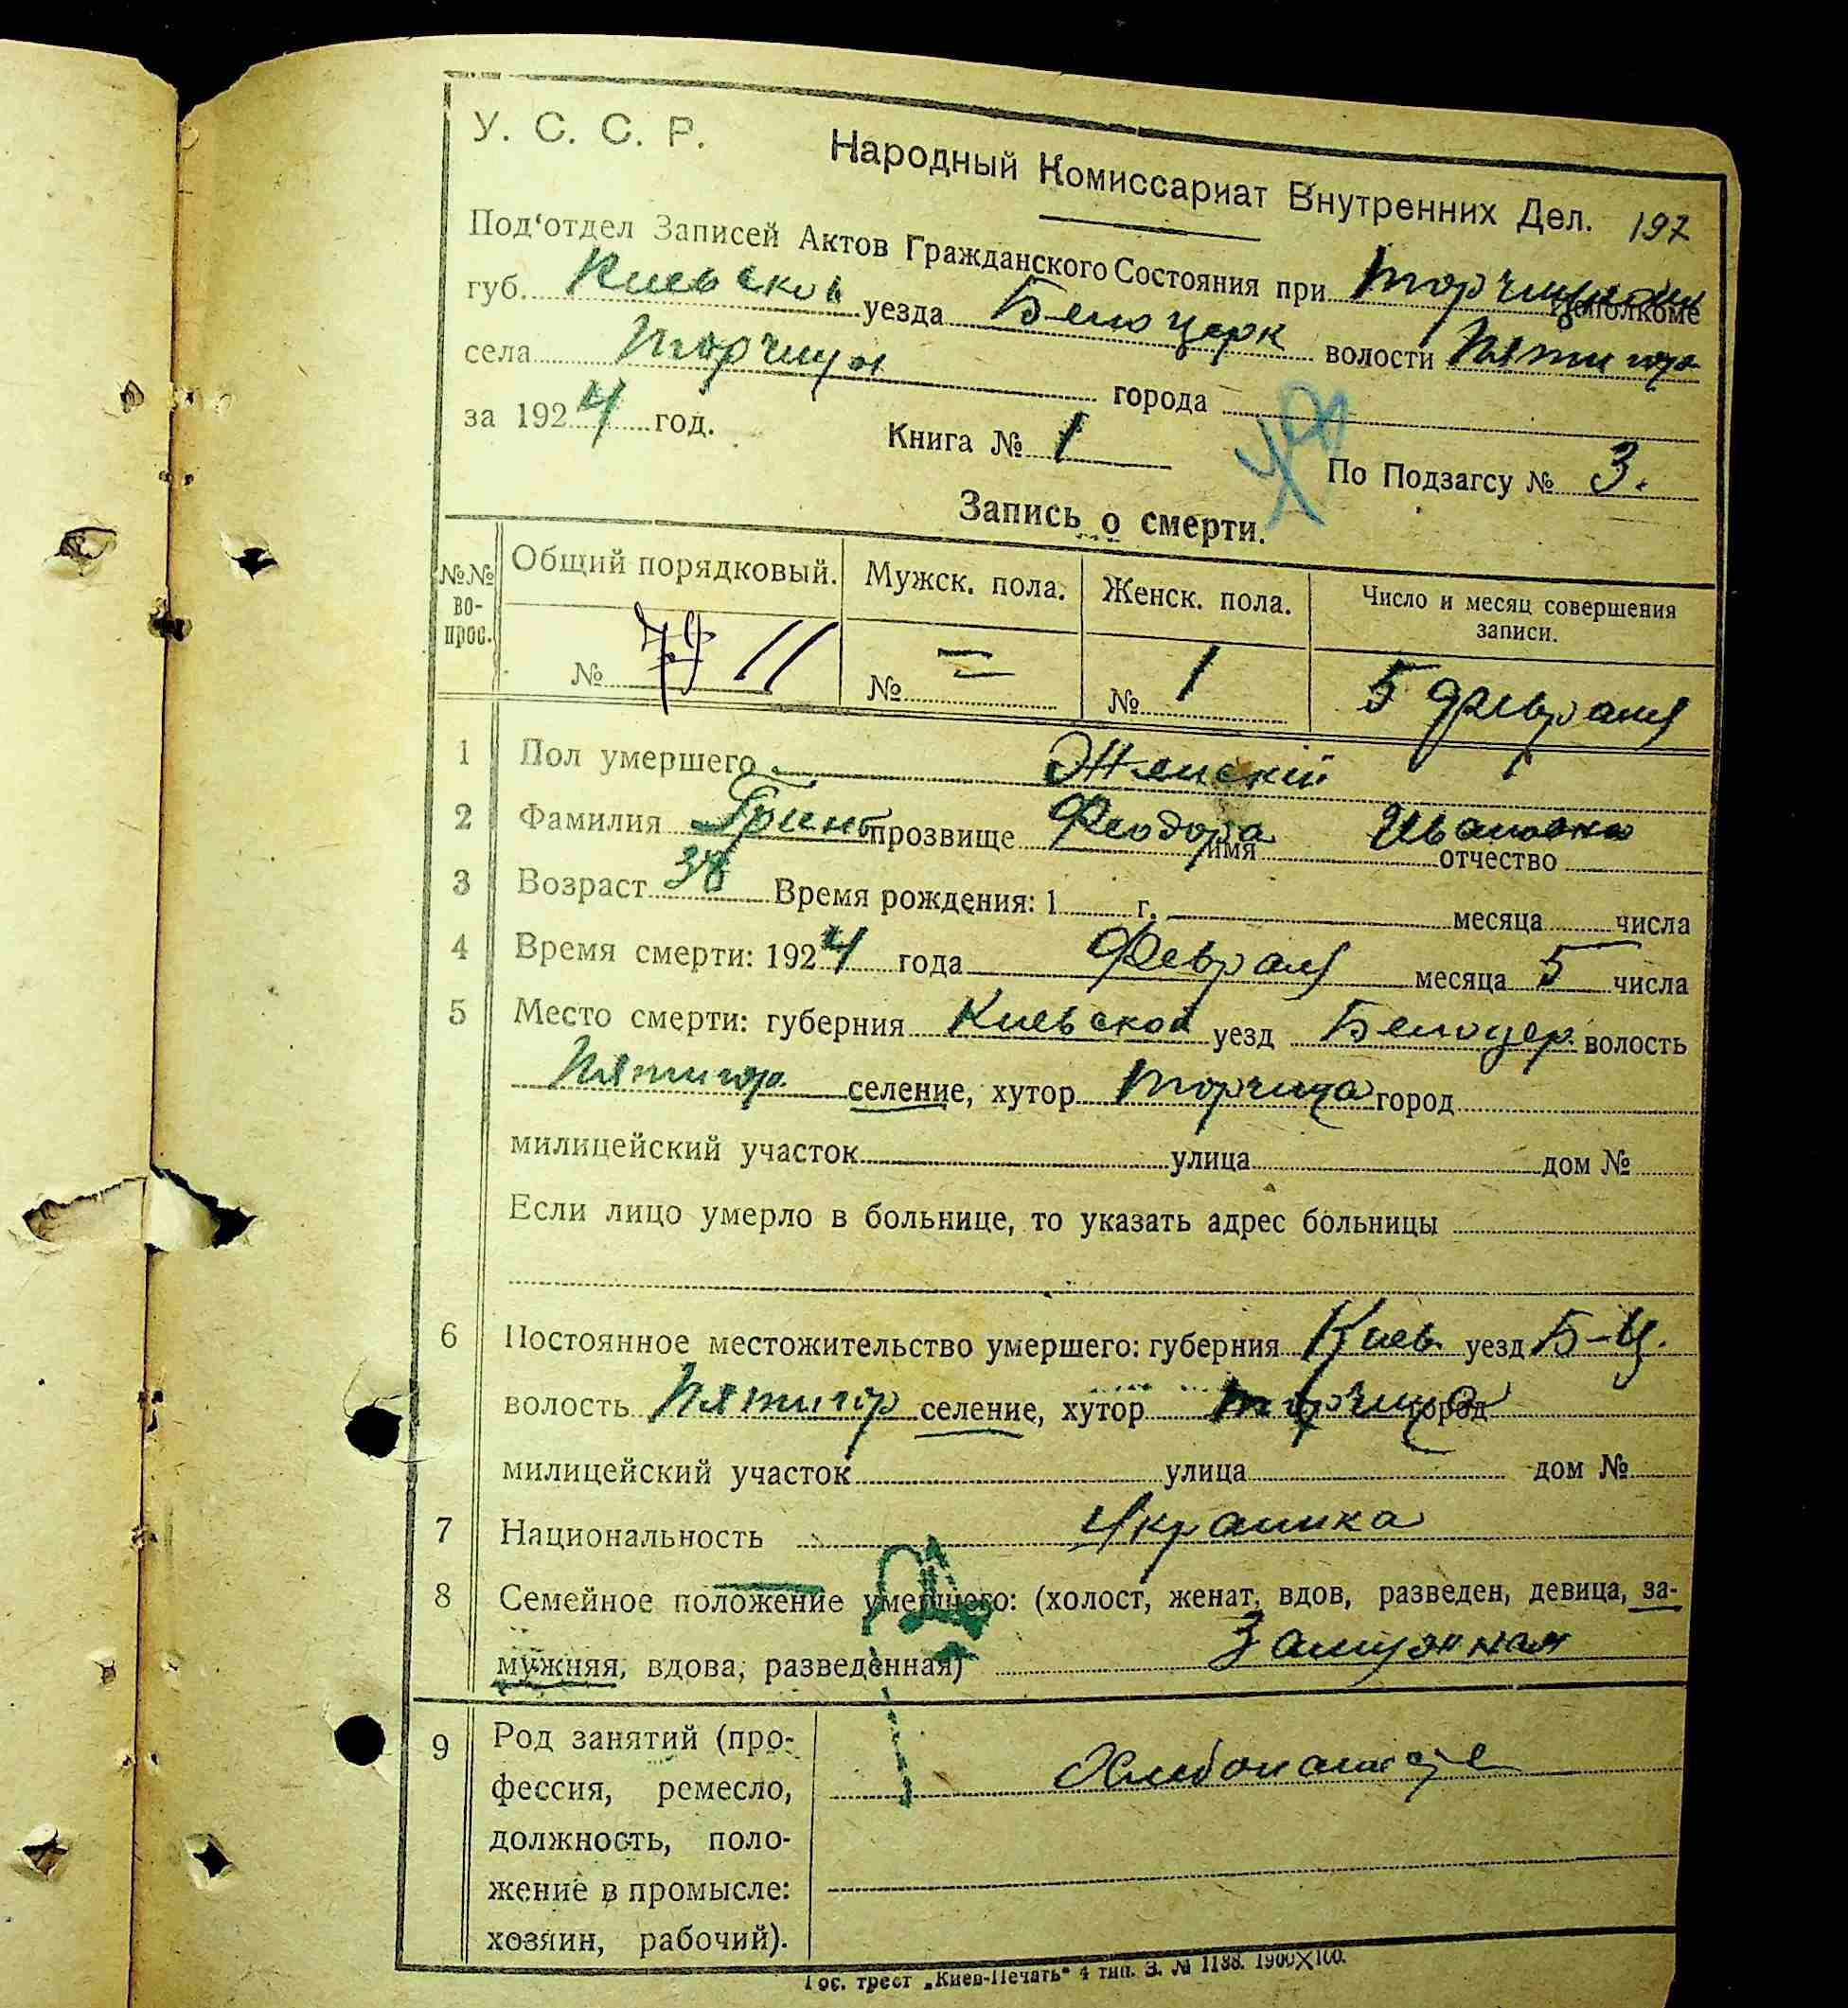 У. С. С. Р.
Народный Комиссариат Внутренних Дел. 197
Под‘отдел Записей Актов Гражданского Состояния при Торчицком Исполкоме
губ. Киевской уезда Белоцерк волости Пятигор
села Торчица города
за 1924 год. Книга № 1 По Подзагсу № 3.
Запись о смерти.
№№ во- прос. Общий порядковый. Мужск. пола. Женск. пола. Число и месяц совершения записи.
№ 79 11 № = № 1 5 февраля
1 Пол умершего Женский
2 Фамилия прозвище Феодора имя Ивановна отчество
3 Возраст 38 Время рождения: 1 г. месяца числа
4 Время смерти: 1924 года Февраля месяца 5 числа
5 Место смерти: губерния Киевской уезд Белоцер. волость
Пятигор. селение, хутор Торчица город
милицейский участок улица дом №
Если лицо умерло в больнице, то указать адрес больницы
6 Постоянное местожительство умершего: губерния Киев. уезд Б-Ц.
волость Пятигор селение, хутор Торчица город
милицейский участок улица дом №
7 Национальность Украинка
8 Семейное положение умершего: (холост, женат, вдов, разведен, девица, за-
мужняя, вдова, разведенная) Замужная
9 Род занятий (про-
фессия, ремесло,
должность, поло-
жение в промысле:
хозяин, рабочий).
Гос. трест „Киев-Печать“ 4 тип. З. № 1188. 1900X100.